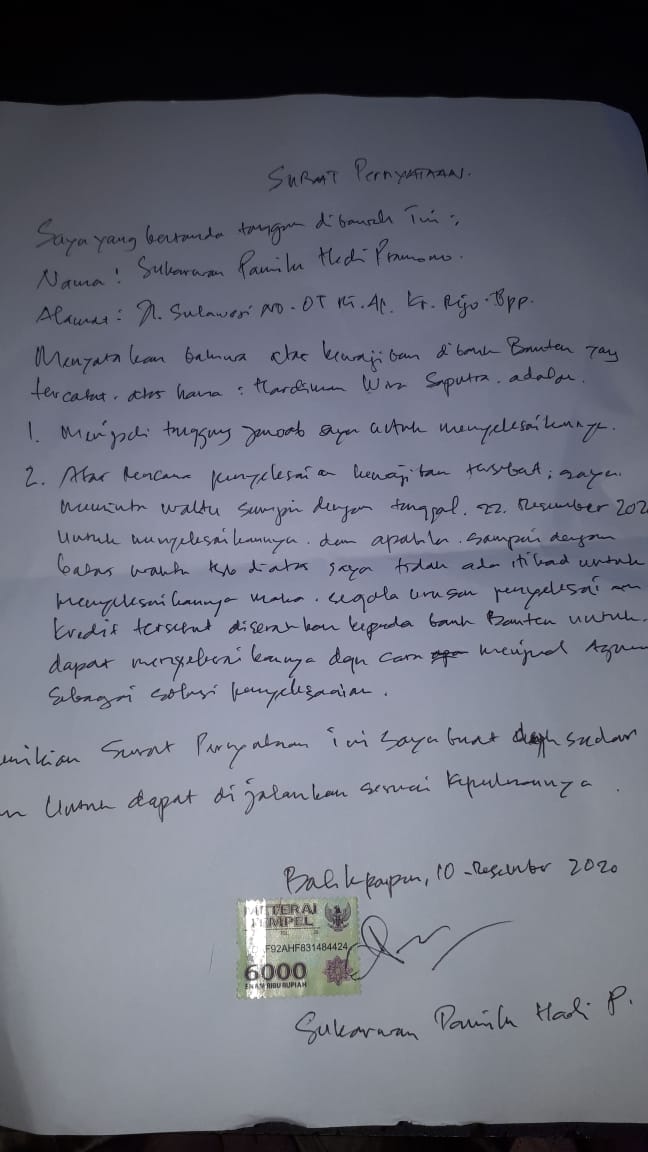 SURAT PERNYATAAN.
Saya yang bertanda tangan dibawah ini :
Nama : Sukarwan Pamilu Hadi Pramono.
Alamat : Jl. Sulawesi No. 07 Kr. Rijo. Bpp.
Menyatakan bahwa atas kewajiban di bank Banten yang
tercatat. atas nama : Hardiman Saputra. adalah.
1. Menjadi tanggung jawab saya untuk menyelesaikannya.
2. Atas Rencana penyelesaian kewajiban tersebut, saya
meminta waktu sampai dengan tanggal. 22. Desember 202
Untuk menyelesaikannya. dan apabila. sampai dengan
batas waktu tsb diatas saya tidak ada itikad untuk
menyelesaikannya maka. segala urusan penyelesaian
kredit tersebut diserahkan kepada bank Banten untuk.
dapat dgn cara menjual Agunan
Sebagai solusi penyelesaian.
emikian Surat Pernyataan ini saya buat dgn sadar
an Untuk dapat di jalankan sesuai keperluannya.
Balikpapan, 10 - Desember 2020
METERAI
TEMPEL
F92AHF831484424
6000
ENAM RIBU RUPIAH
Sukarwan Pamilu Hadi P.